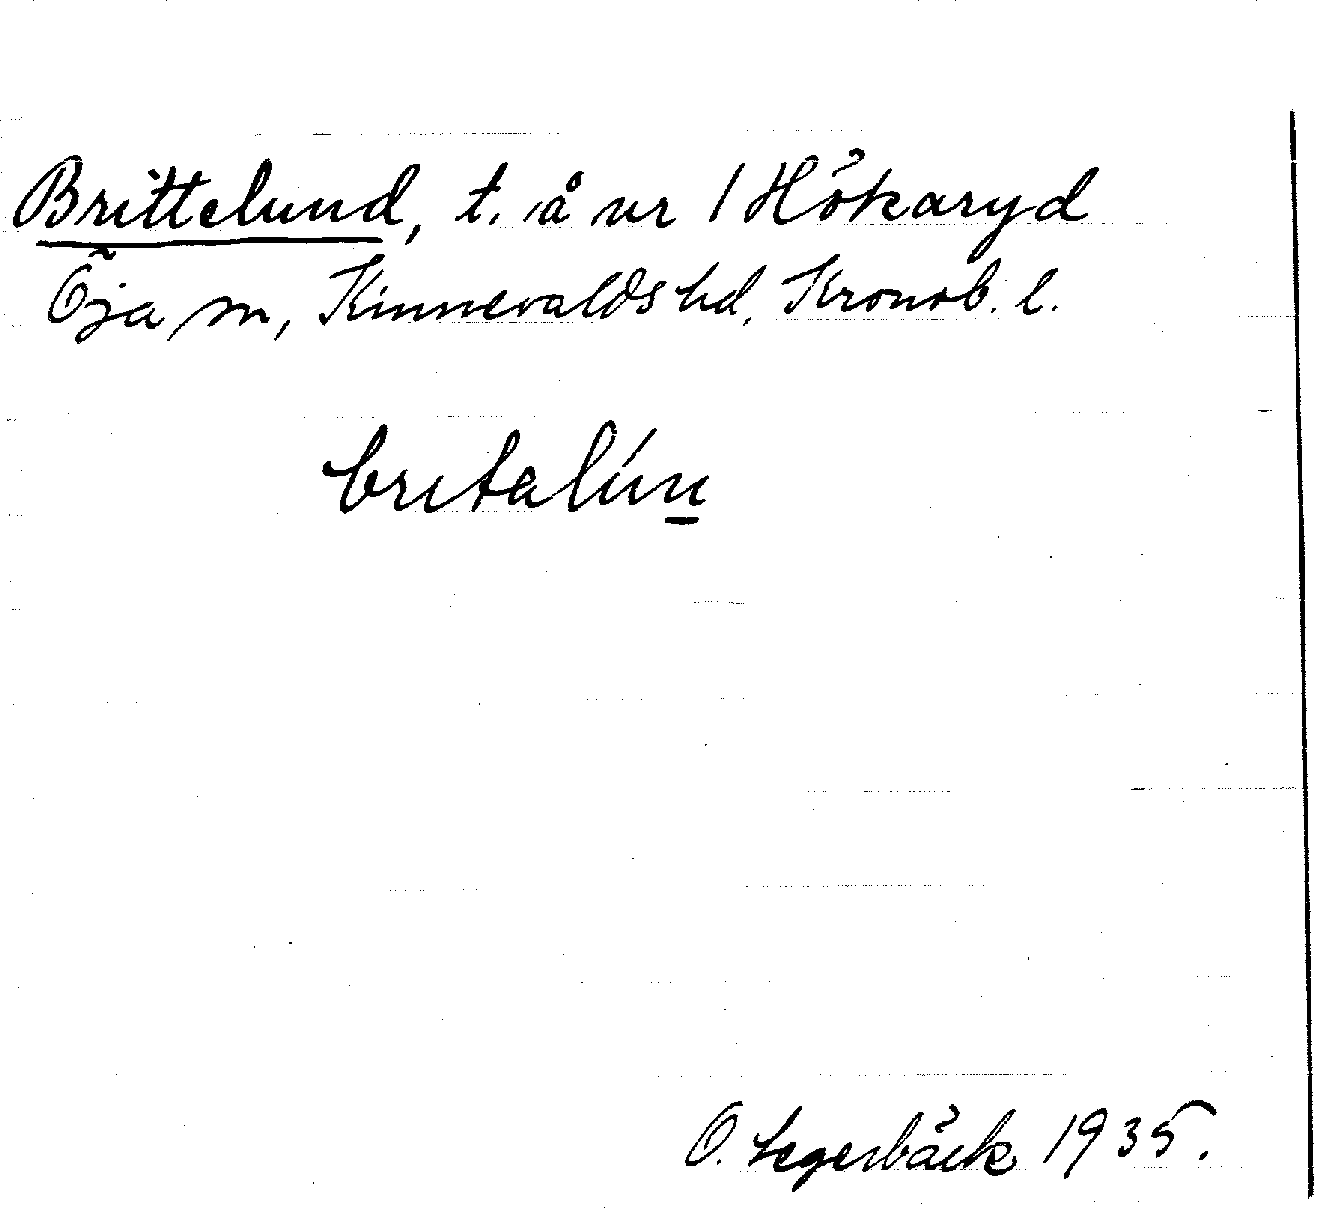 Brittelund, t. å nr 1 Hökaryd
Öja sn, Kinnevalds hd, Kronob. l.
britalún
O. Segerbäck 1935.